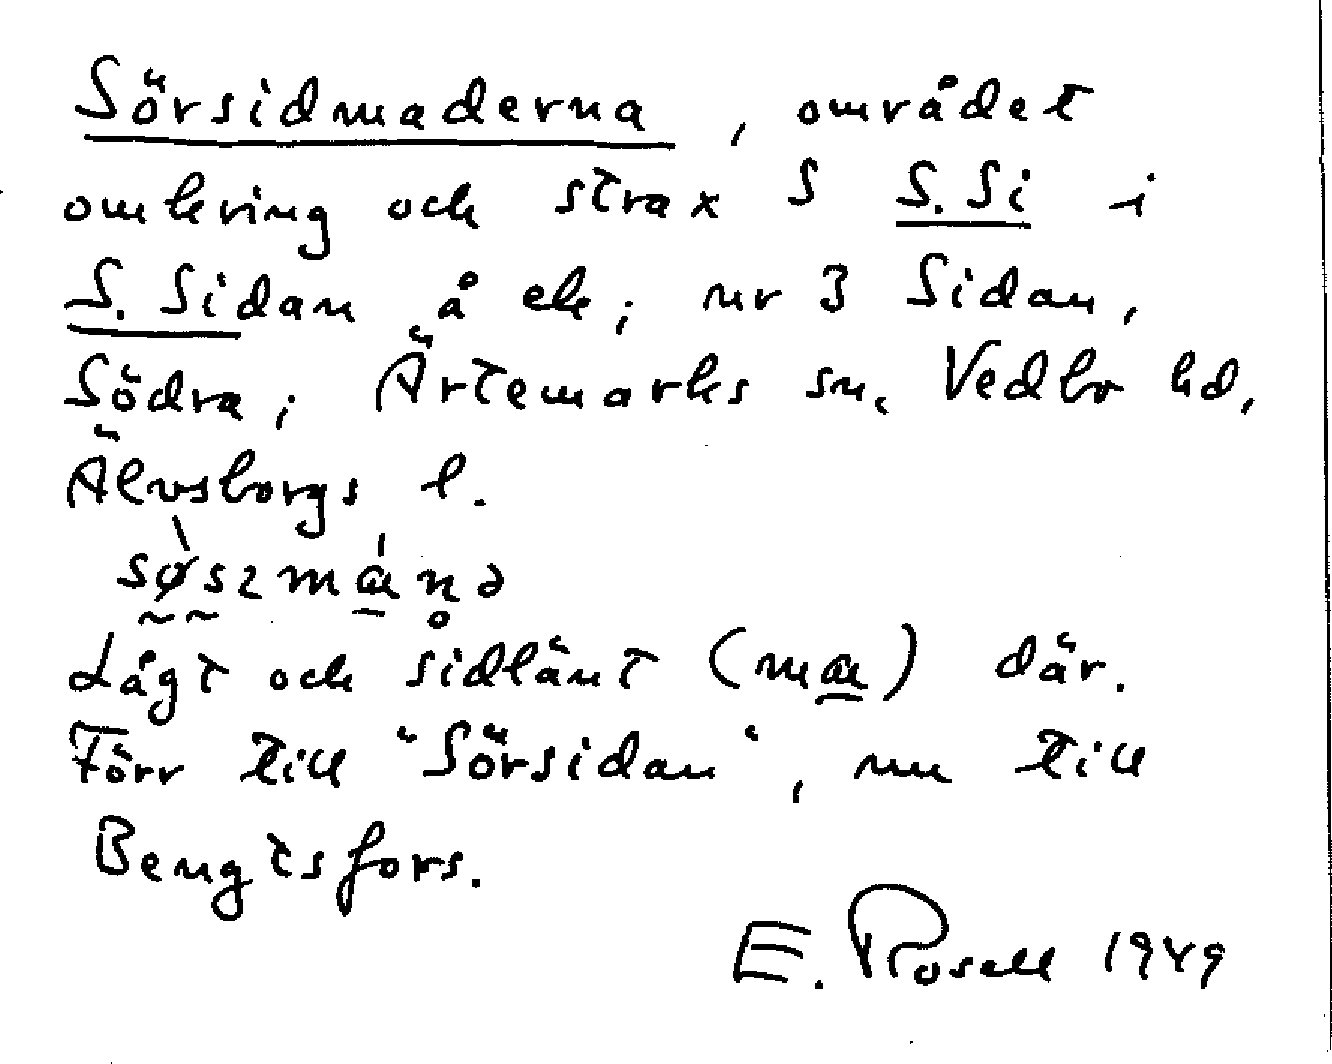 Sörsidmaderna, området
omkring och strax S S. Si i
S. Sidan å ek; nr 3 Sidan,
Södra; Ärtemarks sn, Vedbo hd,
Älvsborgs l.
Lågt och sidlänt (ma) där.
Förr till "Sörsidan", nu till
Bengtsfors.
E. Rosell 1949